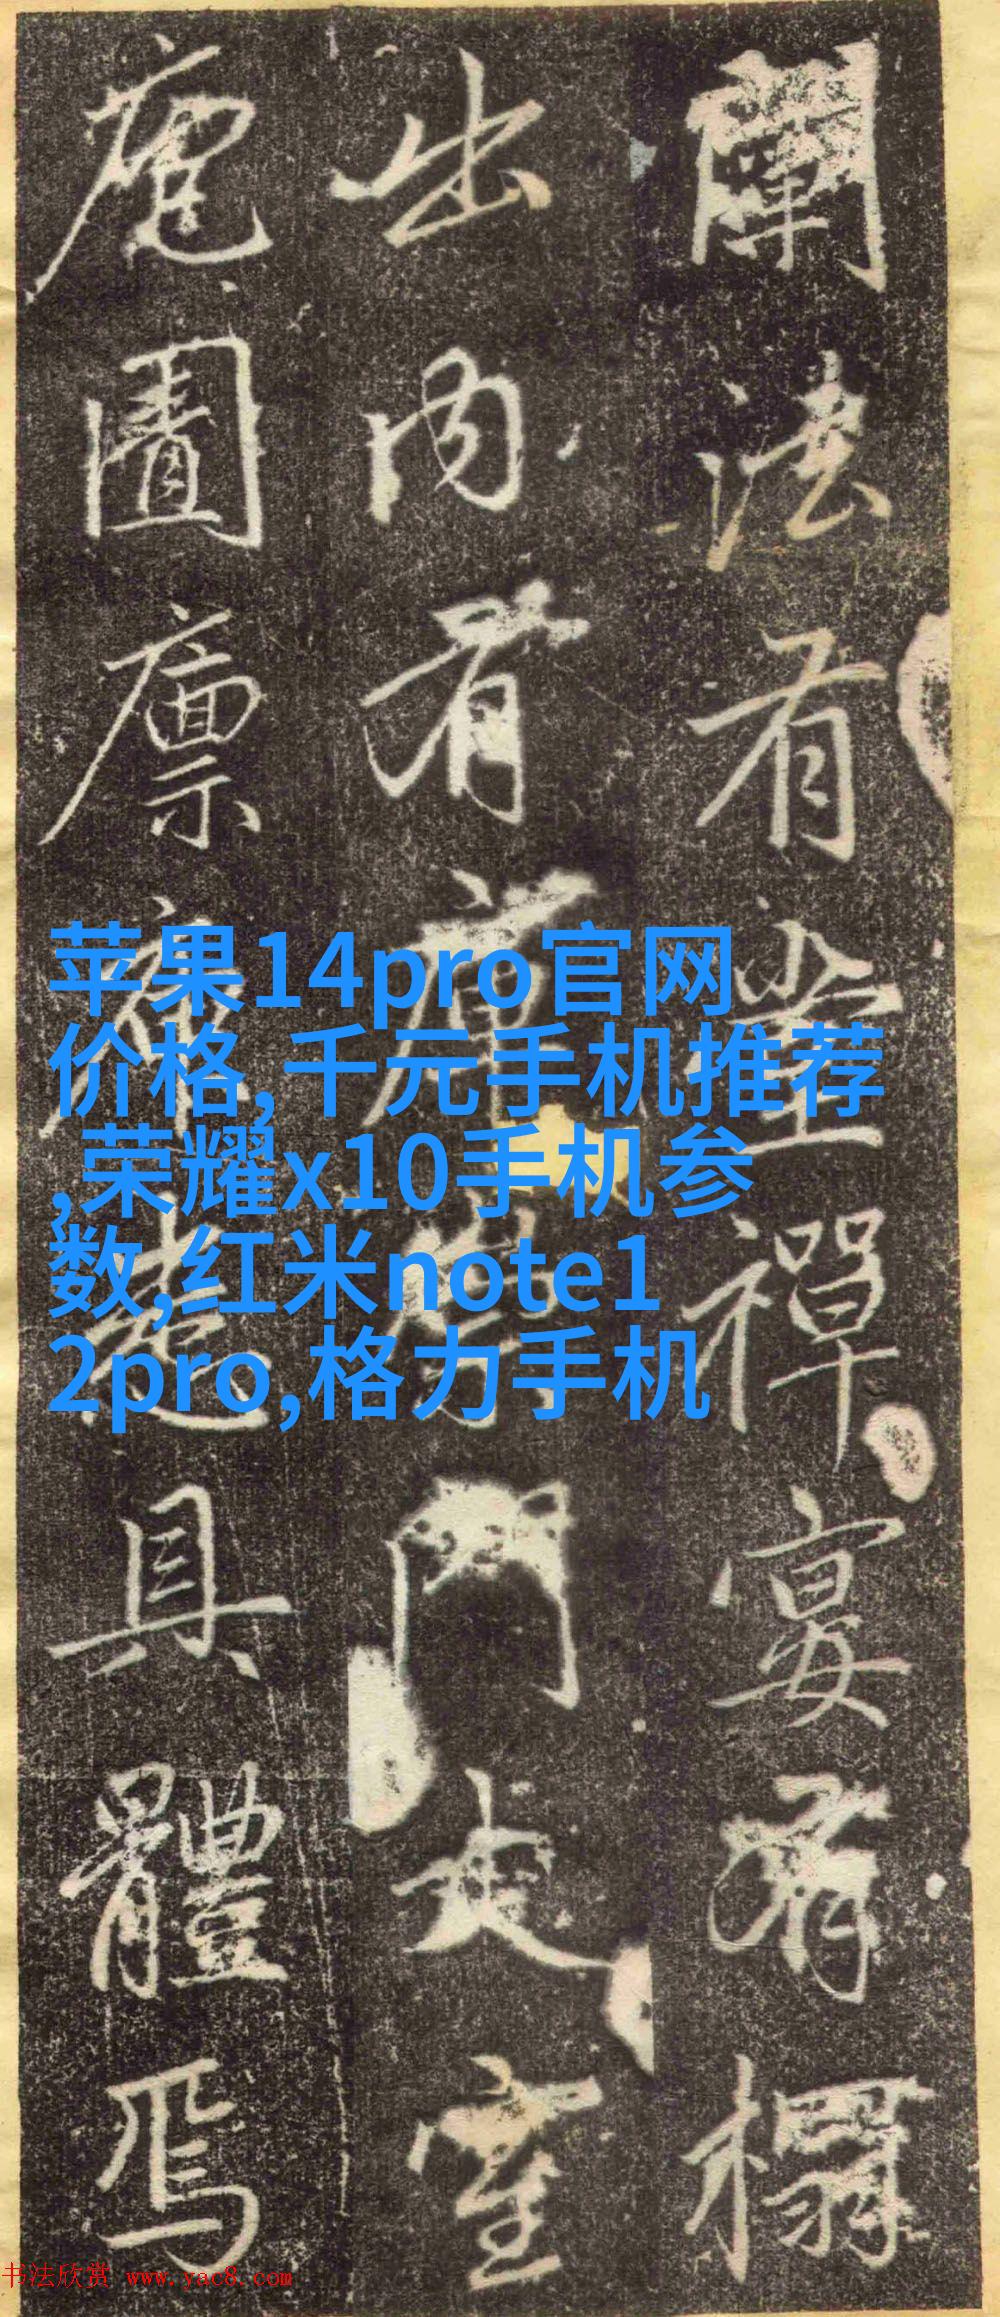 闡法有堂禪宴有榻
出內有門室
庖圊廩具體焉
苹果14pro官网
价格,千元手机推荐
,荣耀x10手机参
数,红米note1
2pro,格力手机
书法欣赏 www.yac8.com